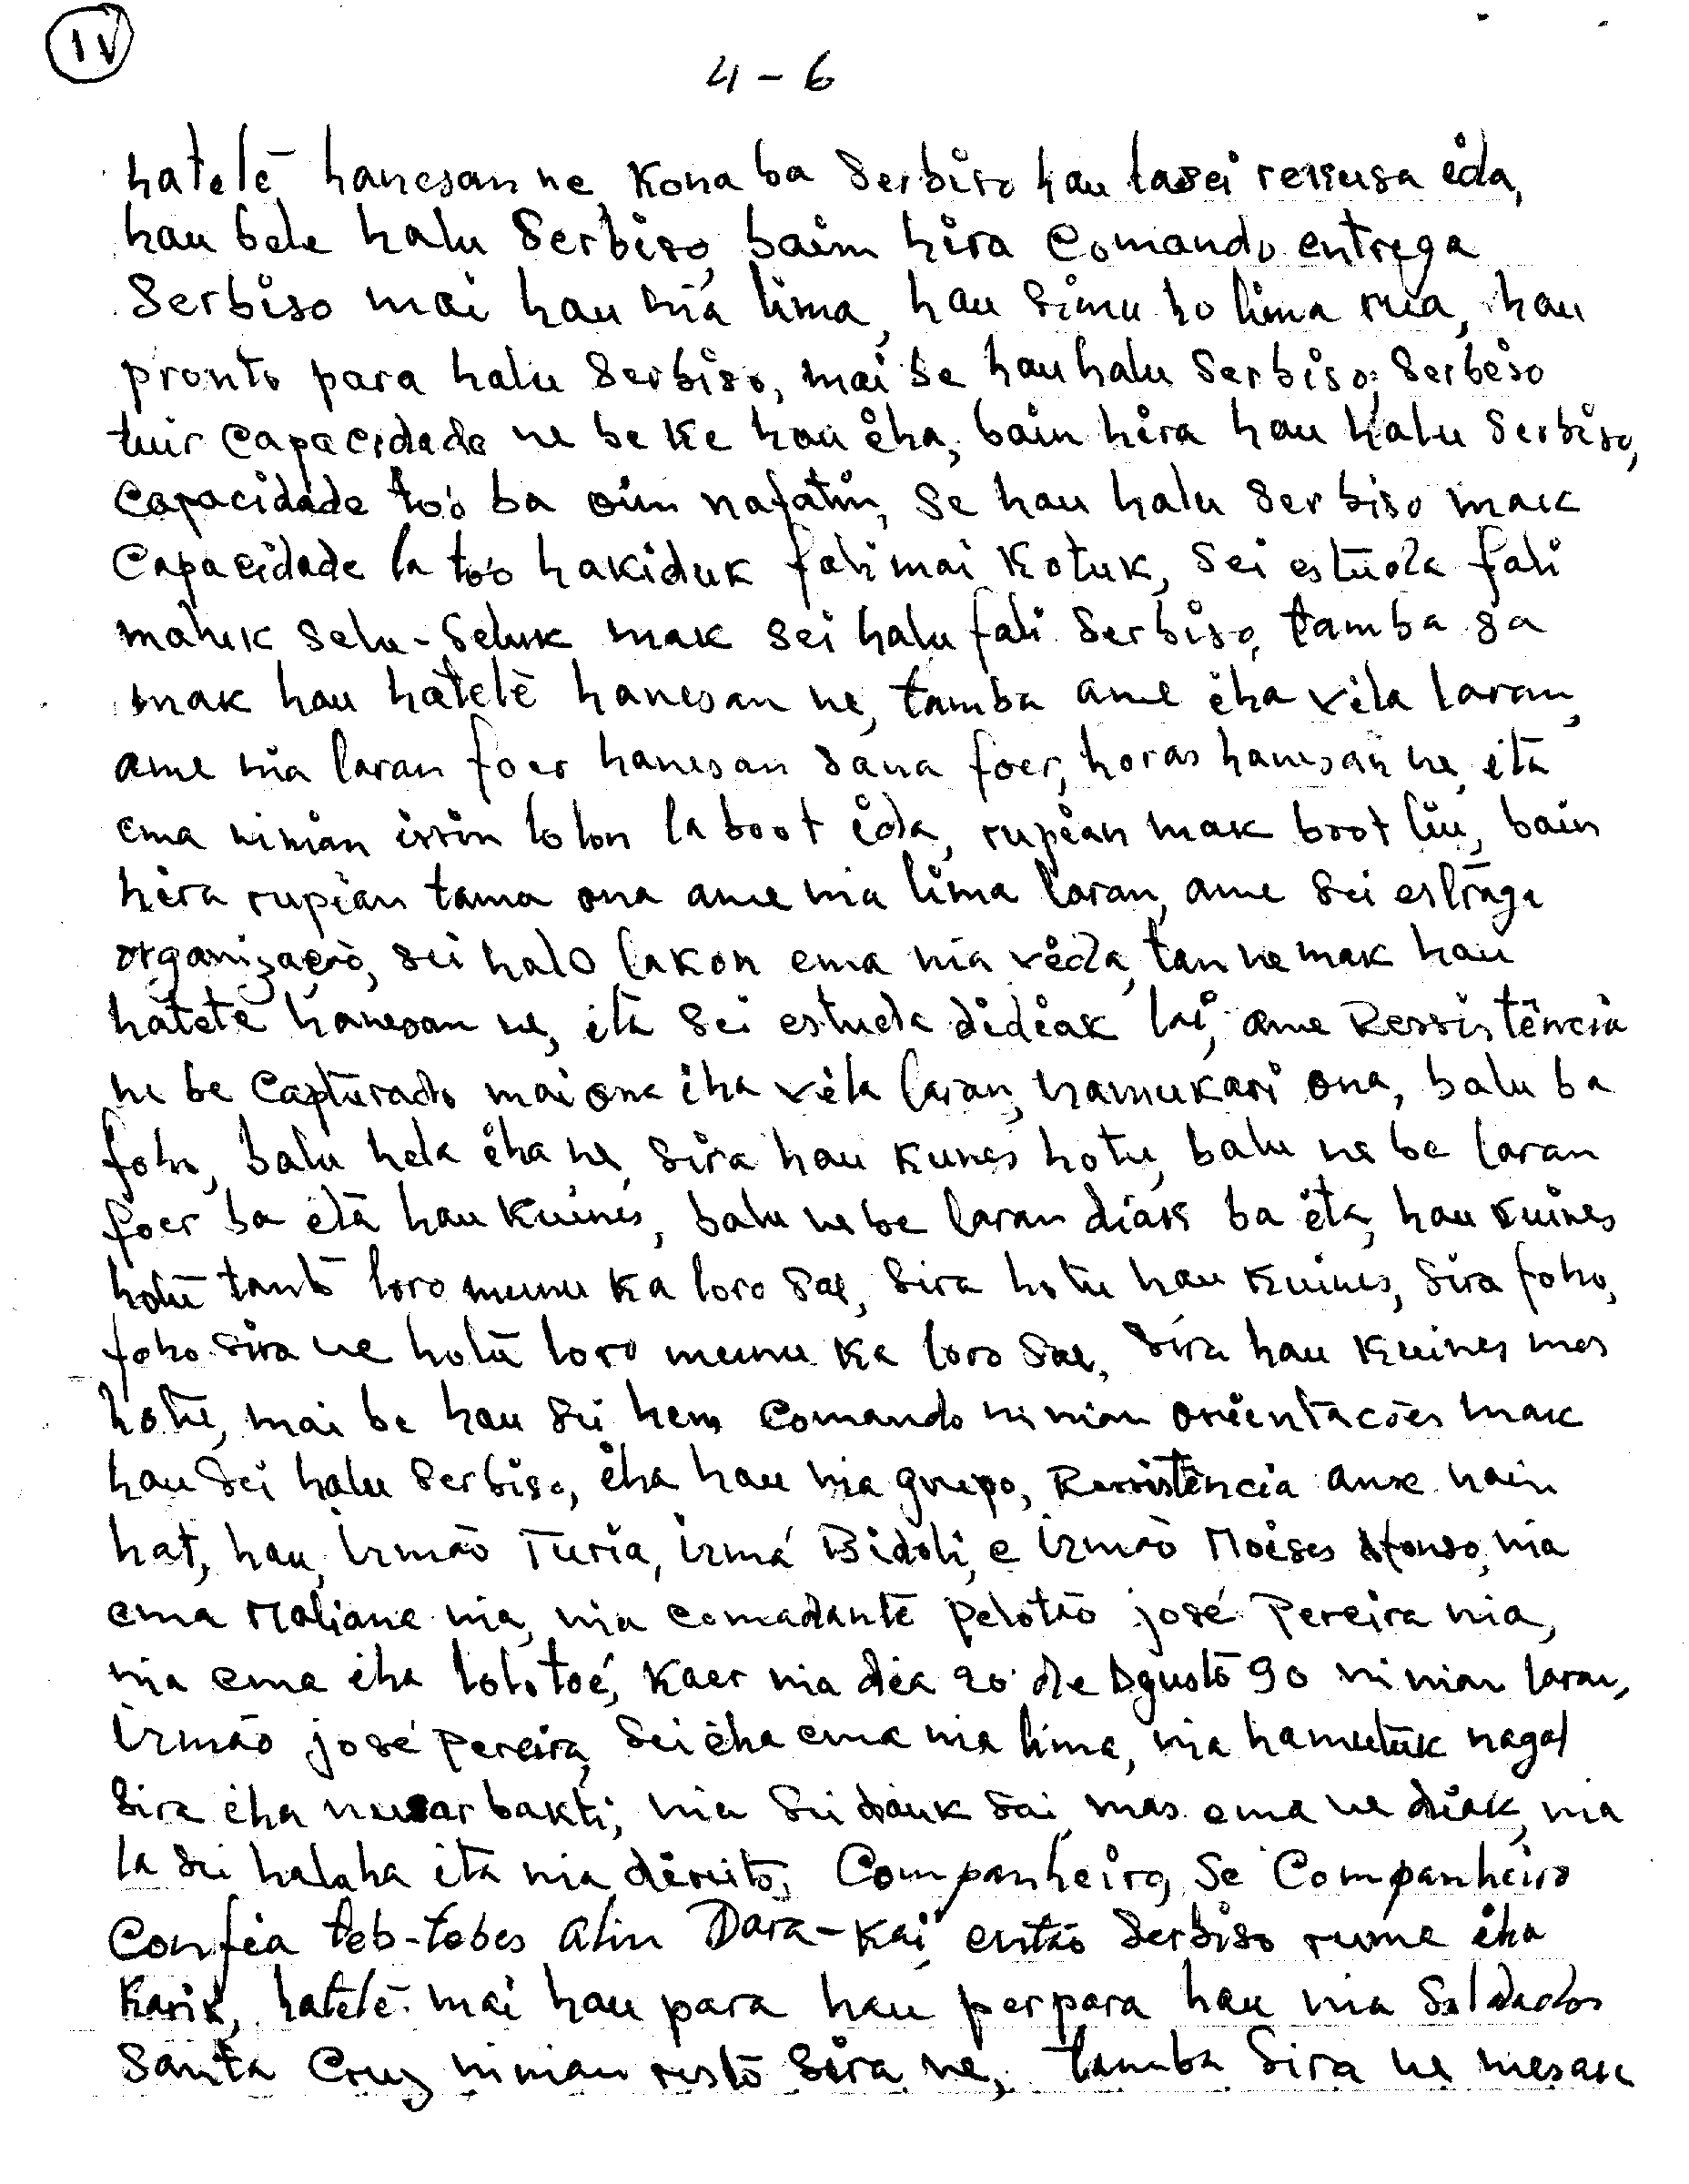 IV
4 - 6
hatetẽ hanesan ne, kona ba Serbiso hau lasei rekusa ida,
hau bele halu Serbiso, bain hira Comando entrega
Serbiso mai hau nia lima, hau Simu ho lima rua, hau
pronto para halu Serbiso, mai se hau halu Serbiso, Serbiso
tuir Capacidade ne be ke hau iha, bain hira hau halu Serbiso,
Capacidade to'o ba oin nafatin, Se hau halu Serbiso mak
Capacidade la to'o hakiduk fali mai Kotuk, Sei estuda fali
maluk Selu-Seluk mak sei halu fali Serbiso, tamba sa
mak hau hatetẽ hanesan ne, tamba ame iha vila laran,
ame nia laran foer hanesan Sana foer, horas hanesan ne, ita
ema ninian issin lolon la boot ida, rupian mak boot liu, bain
hira rupian tama ona ame nia lima laran, ame Sei estraga
organização, sei halo lakon ema nia vida, tan ne mak hau
hatetẽ hanesan ne, ita Sei estuda didiak lai, ame Ressistência
ne be Capturado mai ona iha vila laran, namukari ona, balu ba
foho, balu hela iha ne, Sira hau kunes hotu, balu ne be laran
foer ba ita hau kuines, balu ne be laran diak ba ita, hau kuines
hotu tantõ loro munu ka loro Sae, Sira hotu hau kuines, Sira foho,
foho Sira ne hotu loro munu ka loro Sae, Sira hau kuines mos
hotu, mai be hau Sei hein Comando ninian orientacões mak
hau Sei halu Serbiso, iha hau nia grupo, Ressistência ame nain
hat, hau, Irmão Turia, irmá Bidoli, e Irmão Moises Afonso, nia
ema Maliana nia, nia comadante pelotão josé Pereira nia,
nia ema iha lolotoé, kaer nia dia 20 de Agusto 90 ninian laran,
Irmão josé pereira, Sei iha ema nia lima, nia hamutuk nagal
Sira iha nusar bakti, nia Sei dauk Sai, mas ema ne diak, nia
la Sei haluha ita nia direito, Companheiro, Se Companheiro
Confia teb-tebes alin Dara-Kai, então Serbiso ruma iha
Karik, hatetẽ mai hau para hau perpara hau nia Soldados
Santa Cruz ninian resto Sira ne, tamba Sira ne mesak